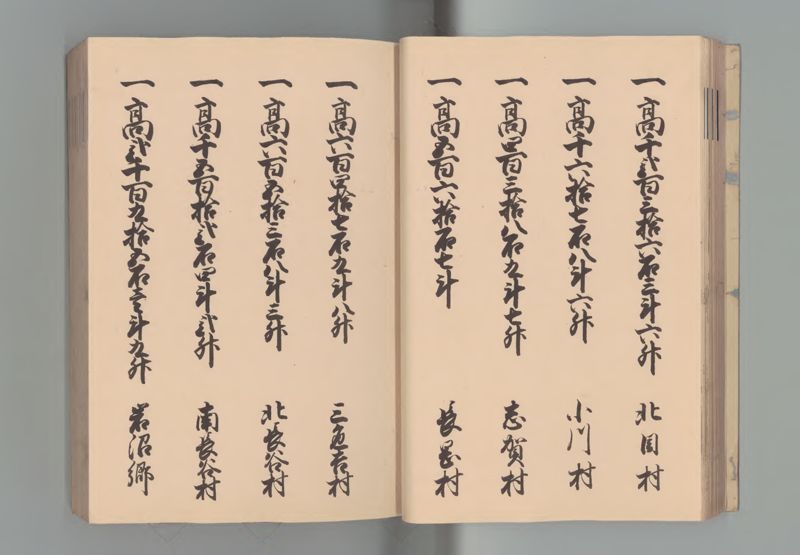 一高千弐百三拾六石三斗六升 北目村
一高千六拾七石八斗六升 小川村
一高四百三拾八石九斗七升 志賀村
一高五百六拾石七斗 長岡村
一高六百四拾七石九斗八升 三色吉村
一高六百五拾三石八斗三升 北長谷村
一高千五百拾弐石四斗弐升 南長谷村
一高弐千百九拾五石壱斗九升 岩沼郷